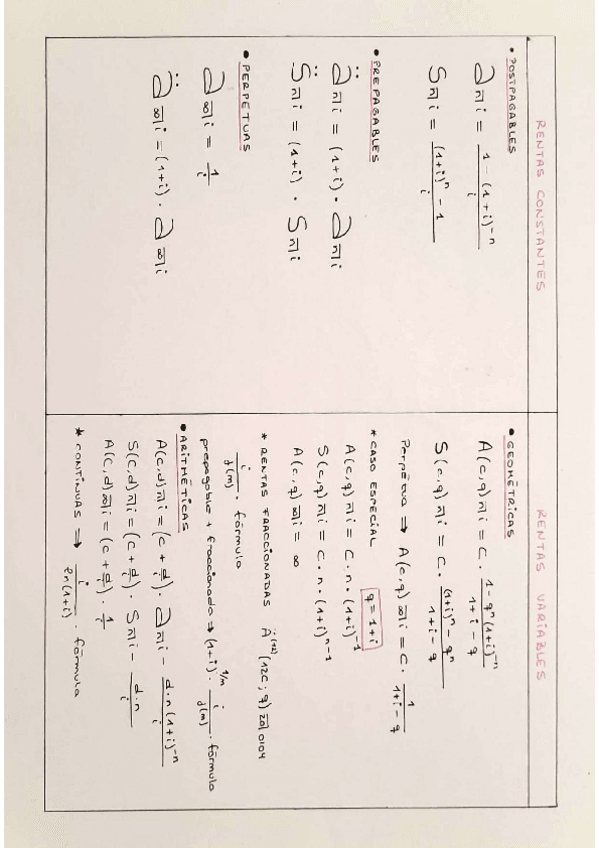 RENTAS CONSTANTES
• POSTPAGABLES
a n̅| i = (1 - (1+i)^-n) / i
S n̅| i = ((1+i)^n - 1) / i
• PREPAGABLES
ä n̅| i = (1+i) · a n̅| i
S̈ n̅| i = (1+i) · S n̅| i
• PERPETUAS
a ∞̅| i = 1/i
ä ∞̅| i = (1+i) · a ∞̅| i
RENTAS VARIABLES
• GEOMÉTRICAS
A(c,q) n̅| i = C · (1 - q^n (1+i)^-n) / (1+i-q)
S(c,q) n̅| i = C · ((1+i)^n - q^n) / (1+i-q)
Perpetua ⇒ A(c,q) ∞̅| i = C · 1 / (1+i-q)
* CASO ESPECIAL q = 1+i
A(c,q) n̅| i = C · n · (1+i)^-1
S(c,q) n̅| i = C · n · (1+i)^n-1
A(c,q) ∞̅| i = ∞
* RENTAS FRACCIONADAS Ä^(12) (12C; q) 20̅| 0'04
i / J(m) · fórmula
prepagable + fraccionada ⇒ (1+i)^1/m · i / J(m) · fórmula
• ARITMÉTICAS
A(c,d) n̅| i = (c + d/i) · a n̅| i - (d·n (1+i)^-n) / i
S(c,d) n̅| i = (c + d/i) · S n̅| i - (d·n) / i
A(c,d) ∞̅| i = (c + d/i) · 1/i
* CONTINUAS ⇒ i / ln(1+i) · fórmula